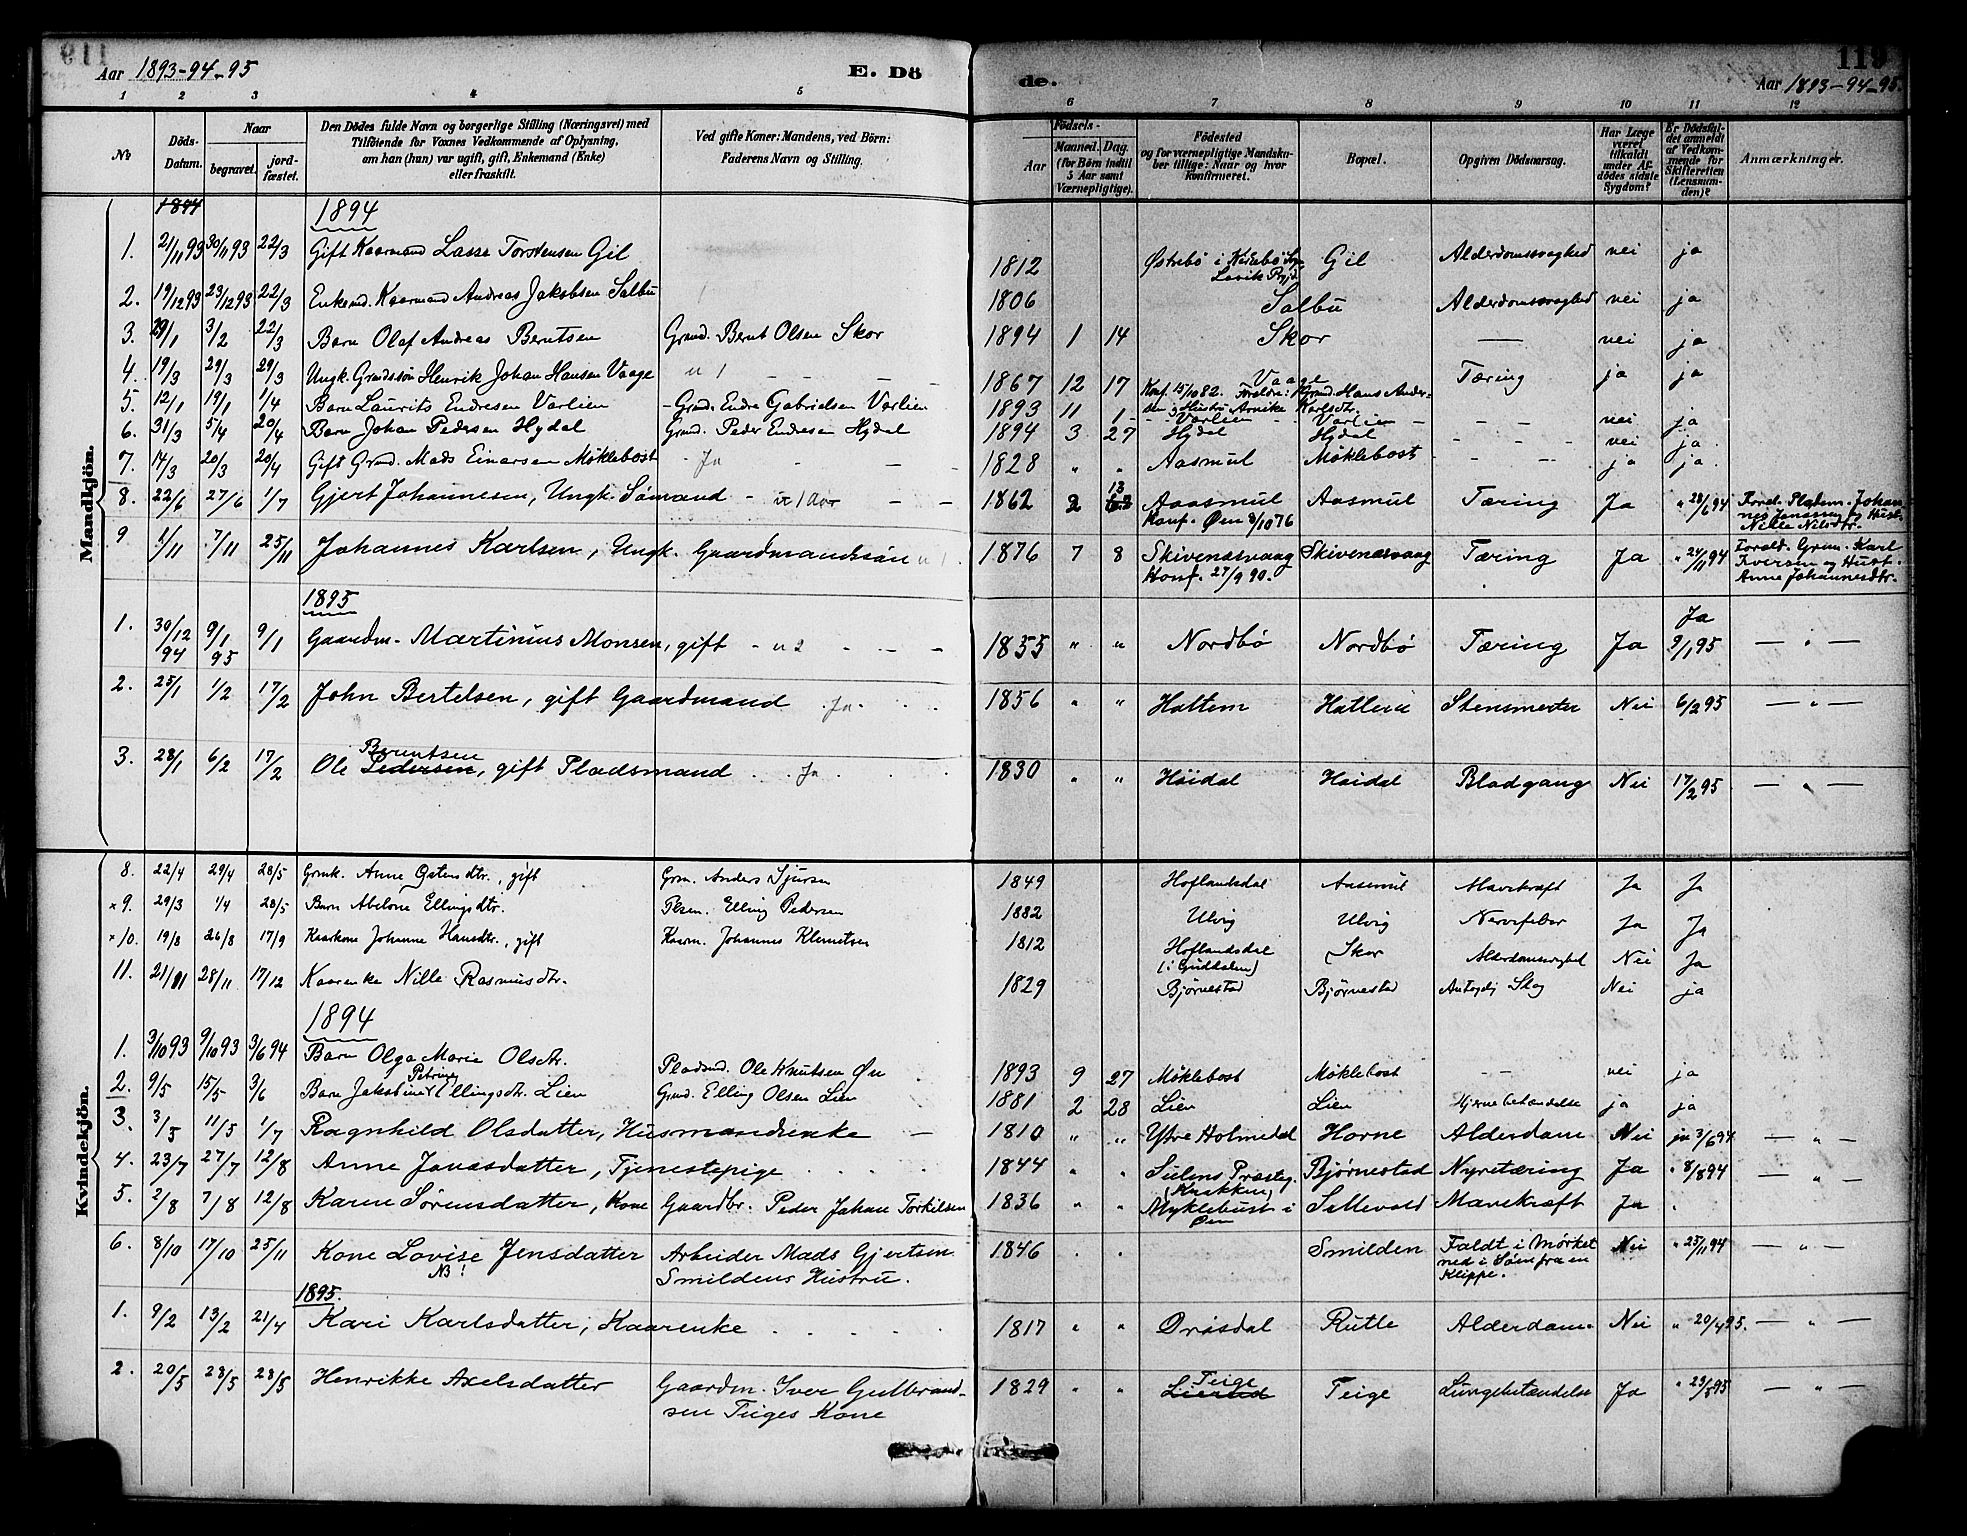 119
Aar 1893-94-95 E. Dö de. Aar 1893-94-95.
1 2 3 4 5 6 7 8 9 10 11 12
No
Döds-Datum.
Naar begravet. jordfæstet.
Den Dödes fulde Navn og borgerlige Stilling (Næringsvei) med
Tilföiende for Voxnes Vedkommende af Oplysning,
om han (hun) var ugift, gift, Enkemand (Enke)
eller fraskilt.
Ved gifte Koner: Mandens, ved Börn:
Faderens Navn og Stilling.
Födsels-
Aar Maaned. Dag.
(for Börn indtil 5 Aar samt Værnepligtige).
Födested
og for værnepligtige Mandskaber tillige: Naar og hvor Konfirmeret.
Bopæl.
Opgiven Dödsaarsag.
Har Læge været tilkaldt under Afdödes sidste Sygdom?
Er Dödsfaldet anmeldt af Vedkommende for Skifteretten (Lensmanden)?
Anmærkninger.
Mandkjön.
1894 1894
1. 21/11 93 30/11 93 22/3 Gift Kaarmand Lasse Torstensen Gil 1812 Østrebö i Lavik Pgjd Gil Alderdomssvaghed nei ja
2. 19/12 93 23/12 93 22/3 Enkemd. Kaarmand Andreas Jakobsen Salbu 1806 Salbu Alderdomssvaghed nei ja
3. 29/1 3/2 22/3 Barn Olaf Andreas Berntsen Grmd. Bernt Olsen Skor 1894 1 14 Skor — nei ja
4. 19/3 29/3 29/3 Ungk. Grmdssön Henrik Johan Hansen Vaage u 1 1867 12 17 Vaage Konf. 15/10 82. Foreldre: Grmd. Hans Andersen og Hustru Karlsdtr. Tæring ja ja
5. 12/1 19/1 1/4 Barn Laurits Endresen Varlien Grmd. Endre Gabrielsen Varlien 1893 11 1 Varlien Varlien nei ja
6. 31/3 5/4 20/4 Barn Johan Pedersen Hydal Grmd. Peder Endresen Hydal 1894 3 27 Hydal Hydal nei ja
7. 14/3 20/3 20/4 Gift Grmd. Mads Einarsen Møklebost Ja 1828 " " Aasmul Møklebost ja ja
8. 22/6 27/6 1/7 Gjert Johannesen, Ungk. Sömand u 1 Aar 1862 2 13 Aasmul Konf. Øen 8/10 76 Aasmul Tæring Ja " 28/6 94 Foreld. Pladsm. Johannes Jonassen og Hust. Nille Nilsdtr.
9 1/11 7/11 25/11 Johannes Karlsen, Ungk. Gaardmandssön u 1 1876 7 8 Skivenæsvaag Konf. 27/9 90. Skivenæsvaag Tæring Ja " 24/11 94 Foræld. Grm. Karl Iversen og Hust. Anne Johannesdtr.
1895
1. 30/12 94 9/1 95 9/1 Gaardm. Martinius Monsen, gift u 2 1855 " " Nordbø Nordbø Tæring Ja Ja 9/1 95 — " —
2. 25/1 1/2 17/2 John Bertelsen, gift Gaardmand Ja 1856 " " Hattem Stensmerter Nei 6/2 95 — " —
3. 28/1 6/2 17/2 Ole Pedersen Berntsen, gift Pladsmand Ja 1830 " " Høidal Høidal Blodgang Nei 17/2 95 — " —
Kvindekjön.
8. 22/4 29/4 28/5 Grmk. Anne Ostensdtr., gift Grm. Anders Sjursen 1849 Hoflandsdal Aasemul Mavekræft Ja Ja
× 9. 29/3 1/4 28/5 Barn Abelone Ellingsdtr. Elling Pedersen 1882 Ulvig Ulvig Nervefeber Ja Ja
× 10. 19/8 26/8 17/9 Kaarkone Johanne Hansdtr., gift Kaarm. Johannes Klemetsen 1812 Hoflandsdal (i Guddalen) Skor Nei Ja
11. 21/11 28/11 17/12 Kaarenke Nille Rasmusdtr. 1829 Bjørnestad Bjørnestad Nei ja
1894
1. 3/10 93 9/10 93 3/6 94 Barn Olga Marie Olsdtr. Pladsmd. Ole Knutsen Øn 1893 9 27 Møklebost Møklebost — nei ja
2. 9/5 15/5 3/6 Barn Jakobine Petrine Ellingsdtr. Lien Grmd. Elling Olsen Lien 1881 2 28 Lien Lien ja ja
3. 3/5 11/5 1/7 Ragnhild Olsdatter, Husmandsenke — 1810 " " Ytre Holmedal Horne Alderdom Nei ja 3/6 94 — " —
4. 23/7 27/7 12/8 Anne Jonasdatter, Tjenestepige 1844 " " Sulens Præsteg. (Krakken) Bjørnestad Nyretæring Ja " 8/8 94 — " —
5. 2/8 7/8 12/8 Karen Sørensdatter, Kone Gaardbr. Peder Johan Torkilsen 1836 " " Myklebust i Øen Sellevold Mavekræft Ja
6. 8/10 17/10 25/11 Kone Lovise Jensdatter N3! Arbeider Mads Gjertsen Smildens Hustru. 1846 Smilden Faldt i Mørket ned i Søen fra en Klippe. Nei " 25/11 94 — " —
1895.
1. 9/2 13/2 21/4 Kari Karlsdatter, Kaarenke 1817 " " Drøsdal Rutle Alderdom. Nei " 20/4 95. — " —
2. 20/5 28/5 28/5 Henrikke Axelsdatter Gaardm. Iver Gulbrandsen Teiges Kone 1829 " " Teige Teige Lungebetændelse Ja " 23/5 95 — " —